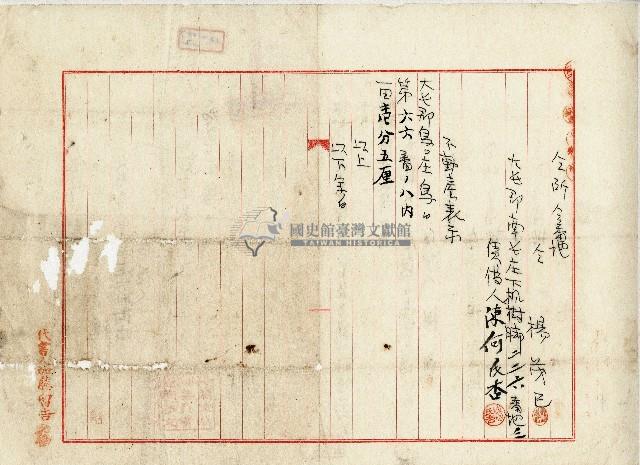 仝所仝番地
仝 楊茂已
大屯郡南屯庄下楓樹腳二二六番地ノ三
債務人陳何氏杏
不動產表示
大屯郡烏日庄烏日
第六六番ノ八內
一田壹分五厘
以上
以下余白
國史館臺灣文獻館
TAIWAN HISTORICA